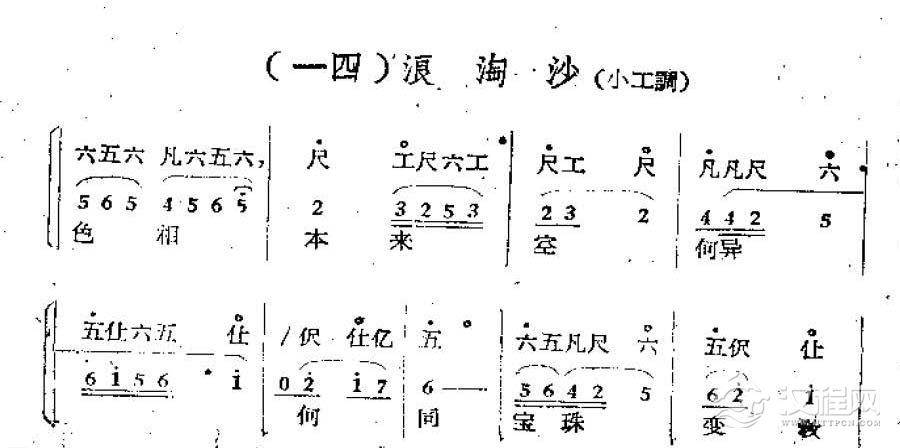 (一四)浪 淘 沙(小工調)
六五六 凡六五六, 尺 工尺六工 尺工 尺 凡凡尺 六
5 6 5 4 5 6 5 2 3 2 5 3 2 3 2 4 4 2 5
色 相 本 来 空 何异
五仩六五 仩 /伬 仩亿 五 六五凡尺 六 五伬 仩
6 1 5 6 1 0 2 1 7 6 — — 5 6 4 2 5 6 2 1
何 同 宝 珠 变
汉程网
HTTPCN.COM